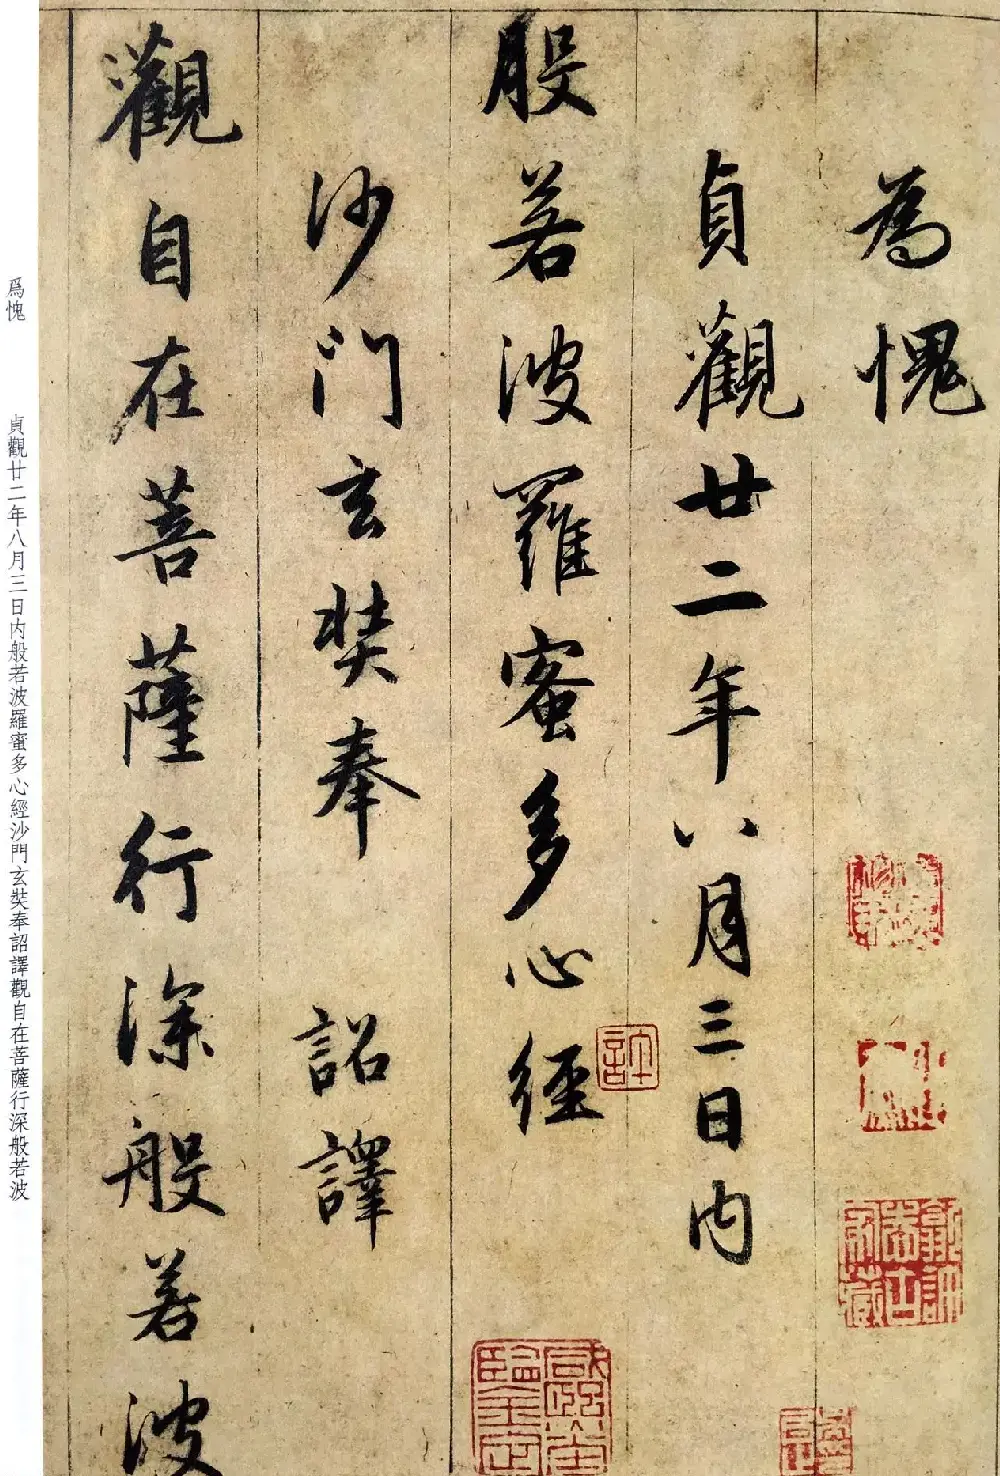 為愧
貞觀廿二年八月三日內
般若波羅蜜多心經
沙門玄奘奉 詔譯
觀自在菩薩行深般若波
許
爲愧 貞觀廿二年八月三日内般若波羅蜜多心經沙門玄奘奉詔譯觀自在菩薩行深般若波